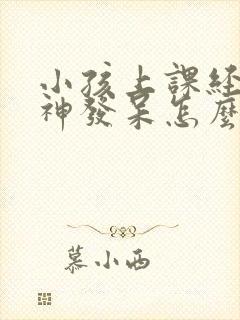 小孩上課经
神發呆怎麼
慕小西